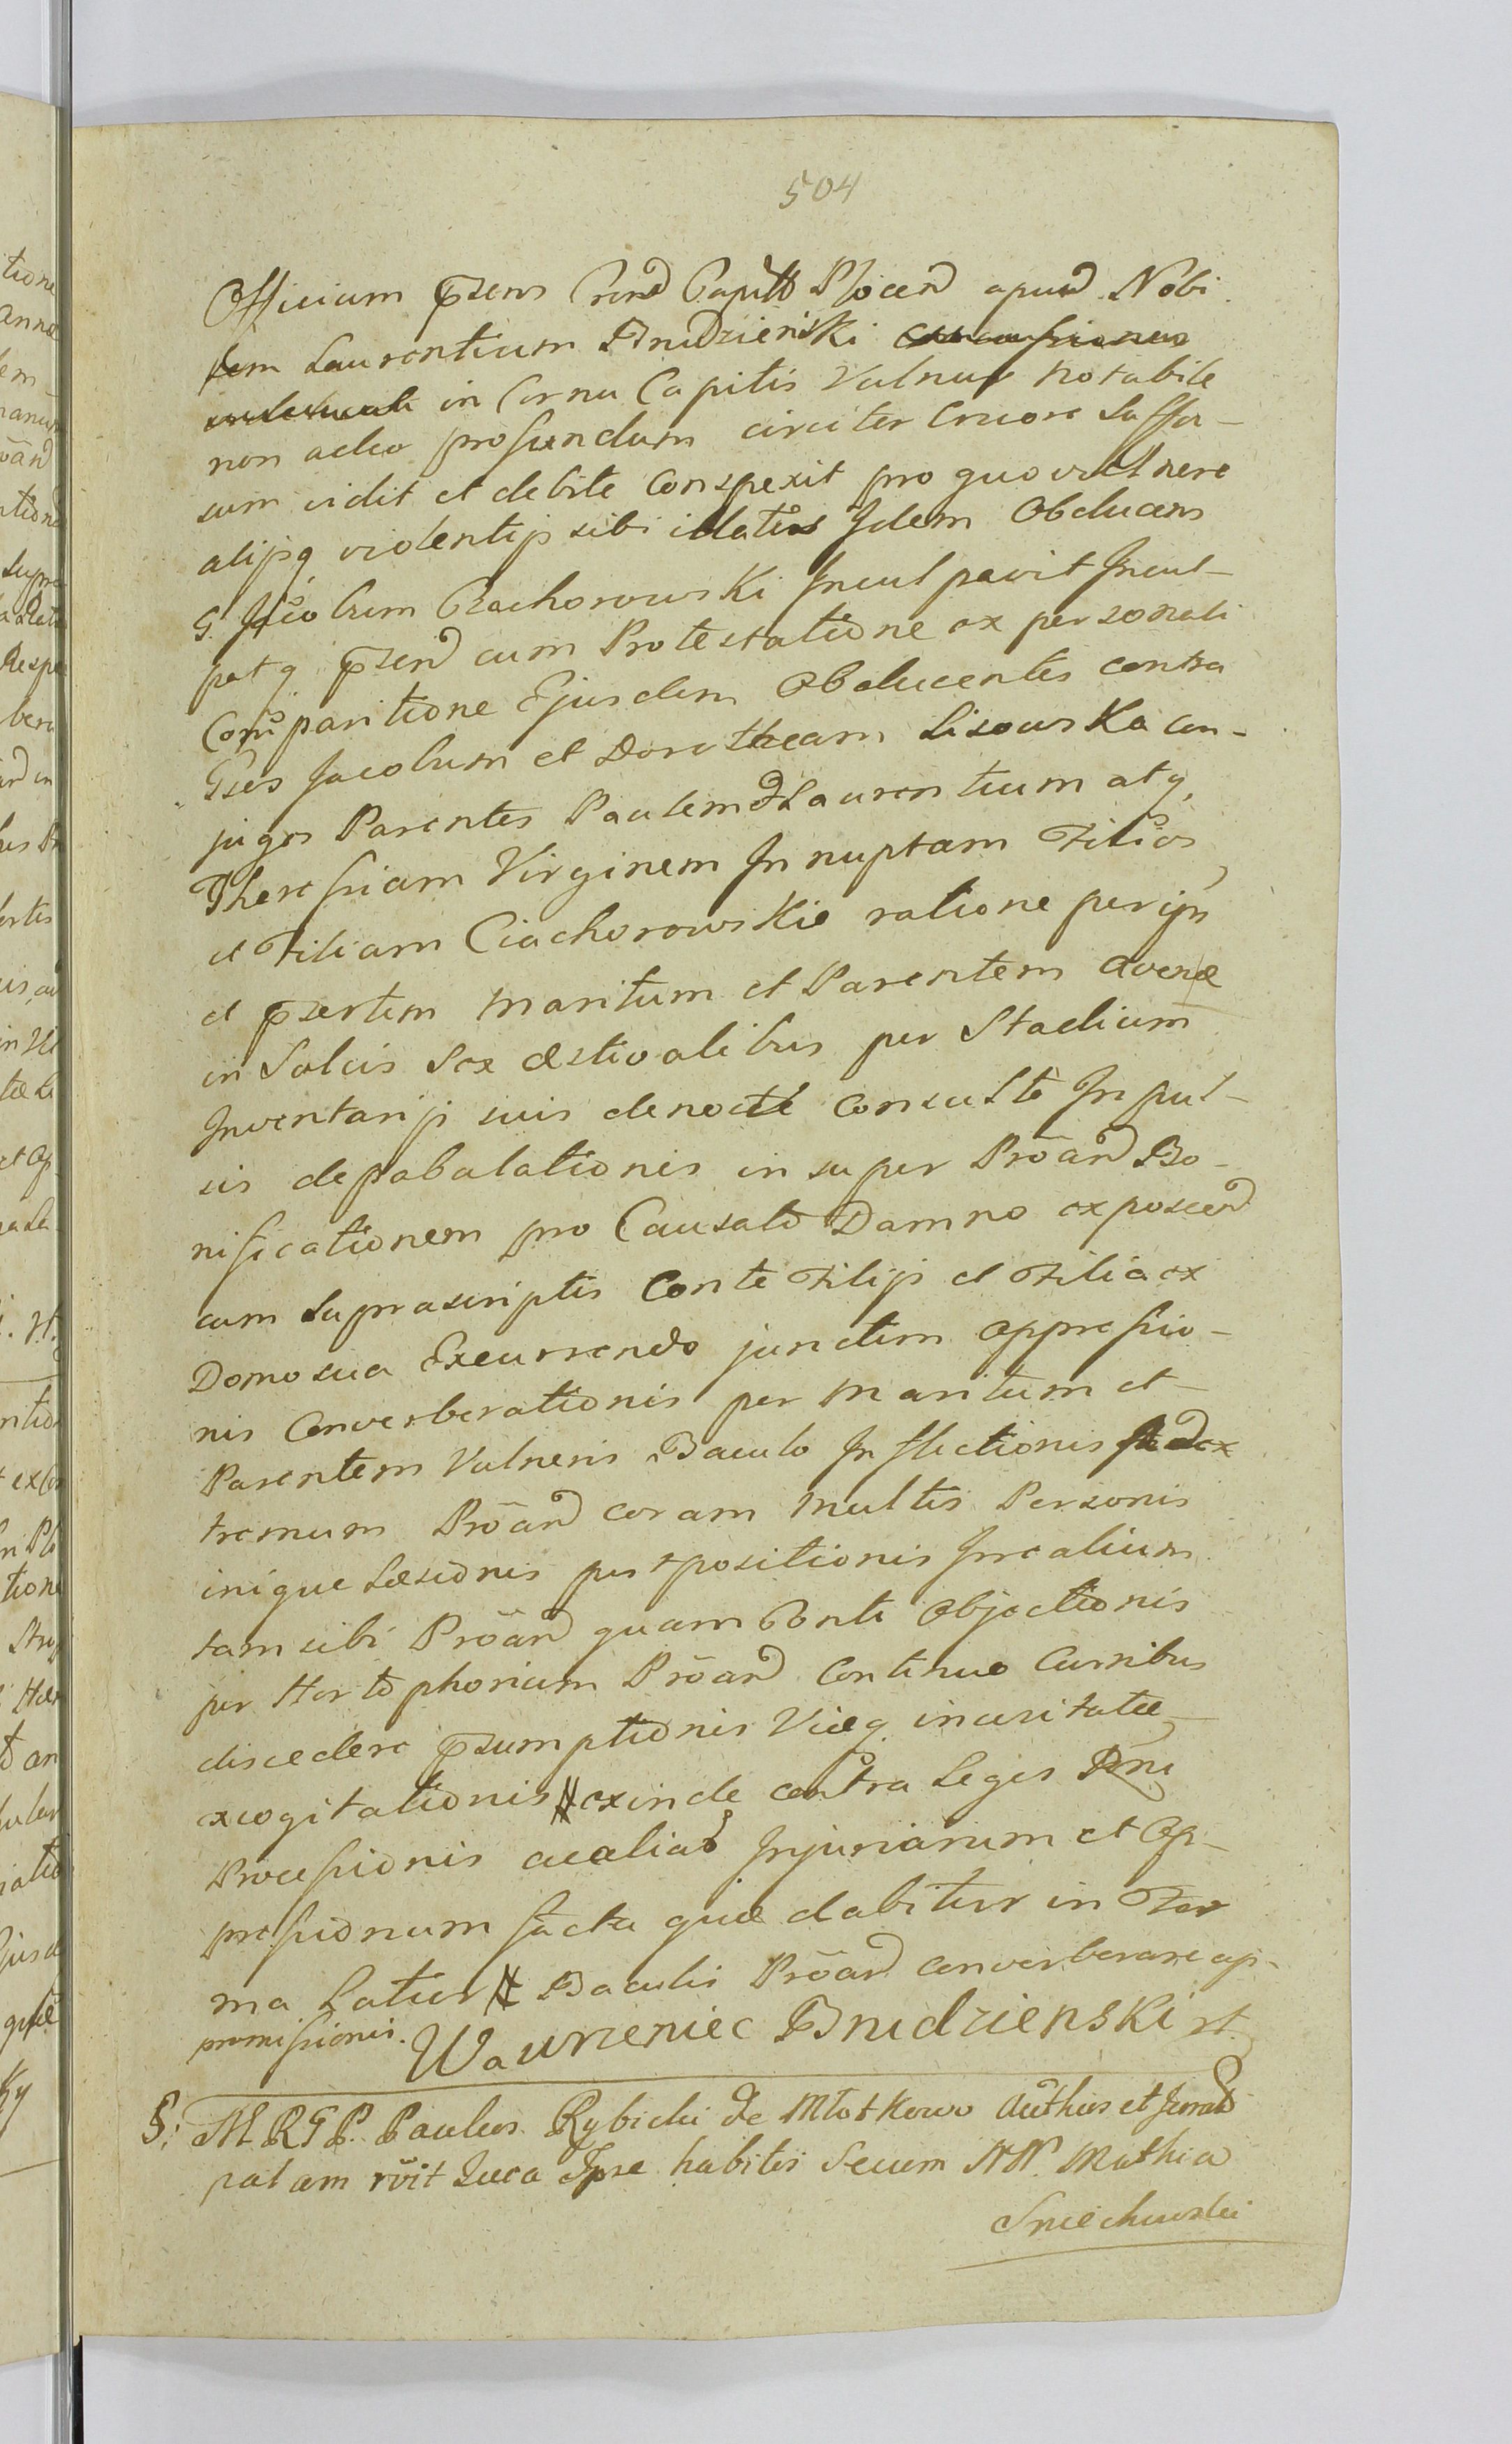 504
Officium prsens Crend Capitt Plocen apud Nobi
lem Laurentium Brudzienski
in Cornu Capitis Vulnus notabile
non adeo profundum circiter Cruore Suffu-
sum vidit et debite Conspexit pro quo vulnere
alijsq violentijs sibi illatis Idem Obducens
G. Jacobum Ciachorowski Inculpavit Incul-
patq prsend cum Protestatione ex personali
Comparitione Ejusdem Obducentis contra
Gses Jacobum et Dorotheam Lisowska con-
juges Parentes Paulum & Laurentium atq,
Theressiam Virginem In nuptam Filios
et Filiam Ciachorowskie ratione per ips
et prsertim Maritum et Parentem avenæ
in Sulcis Sex æstivalibus per Stadium
Inventarijs suis denocte Consulte Inpul-
sis depabulationis in super Prõand Bo-
nificationem pro Causato Damno exposcend
cum Suprascriptis Conte Filijs et Filia ex
Domo sua Excurrendo junctim oppressio-
nis Converberationis per Maritum et
Parentem Vulneris Baculo Inflictionis ad ex
tremum Prõand coram Multis Personis
inique Læsionis postpositionis Irrealium
tam sibi Prõand quam Conti Objectionis
per Hortophorium Prõand Continuo Curribus
discedere prsumptionis Viæq inusitatæ
excogitationis # exinde contra Leges Rgni
Processionis aealiad Injuriarum et Op-
pressionum facta quæ dabitur in For
ma Latius # Baculis Prõand converberare ap-
promissionis. Wawrzeniec Brudzienski st
§: M. R. G. P. Paulus Rybicki de Młotkowo Authus et Jurad
palam rõit Quca Ipse habitis Secum NN. Mathia
Smiechowski